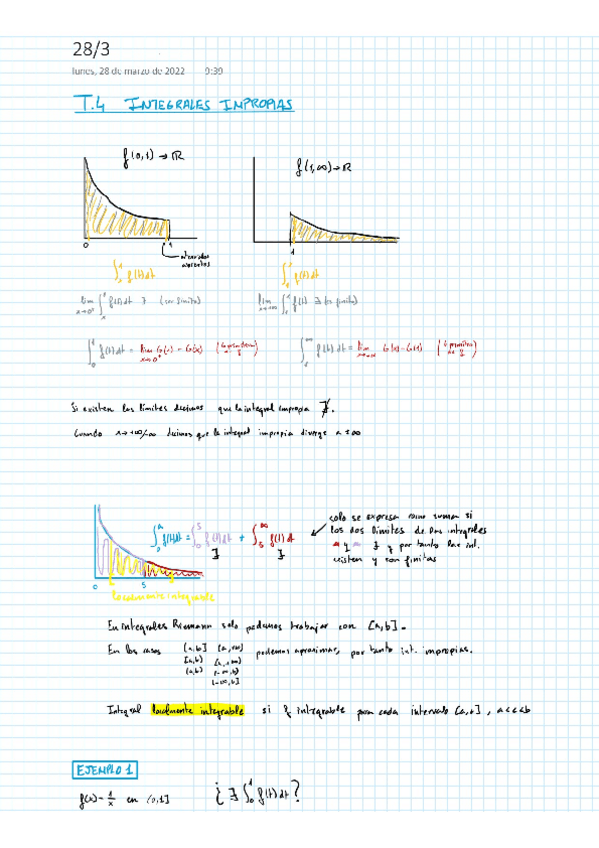 28/3
lunes, 28 de marzo de 2022 9:39
T.4 INTEGRALES IMPROPIAS
f(0,1) → ℝ
f(1,∞) → ℝ
0 1
1
∫₀¹ f(t)dt
∫₁ f(t)dt
lim x→0⁺ ∫ₓ¹ f(t)dt ∃ (ser finito)
lim x→+∞ ∫₁ˣ f(t) ∃ (ser finito)
∫₀¹ f(t)dt = lim x→0⁺ G(1) - G(x) (G primitiva de f)
∫₁^∞ f(t)dt = lim x→∞ G(x) - G(1) (G primitiva de f)
Si existen los límites decimos que la integral impropia ∃.
Cuando x→+∞/-∞ decimos que la integral impropia diverge a ±∞
solo se expresa como suma si
los dos límites de las integrales
∃ y por tanto las int.
existen y son finitas
f(t)dt = ∫₀⁵ f(t)dt + ∫₅^∞ f(t)dt
∃ ∃
0 5
localmente integrable
En integrales Riemann solo podemos trabajar con [a,b].
En los casos (a,b] (a,+∞) podemos aproximar, por tanto int. impropias.
[a,b) [a,+∞)
(a,b) (-∞,b)
(-∞,b]
Integral localmente integrable si f integrable para cada intervalo
EJEMPLO 1
f(x) = 1/x en (0,1] ¿∃ ∫₀¹ f(t)dt?